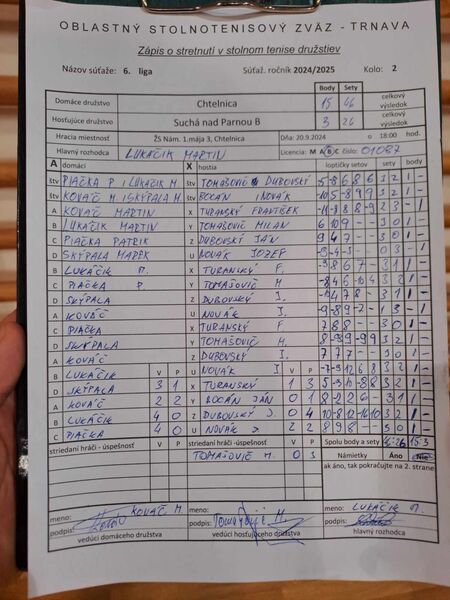 OBLASTNÝ STOLNOTENISOVÝ ZVÄZ - TRNAVA
Zápis o stretnutí v stolnom tenise družstiev
Názov súťaže: 6. liga Súťaž. ročník 2024/2025 Kolo: 2
Body Sety
Domáce družstvo Chtelnica 15 46 celkový výsledok
Hosťujúce družstvo Suchá nad Parnou B 3 26 celkový výsledok
Hracia miestnosť ZŠ Nám. 1.mája 3, Chtelnica Dňa: 20.9.2024 o 18:00 hod.
Hlavný rozhodca LUKÁČIK MARTIN Licencia: M A B C číslo: 01087
A domáci X hostia loptičky setov sety body
štv PIAČKA P LUKÁČIK M štv TOMAŠOVIČ DUBOVSKÝ 3 2 1 -
štv KOVÁČ M. SKÝPALA M. štv BOCÁN NOVÁK 3 2 1 -
A KOVÁČ MARTIN X TURANSKÝ FRANTIŠEK 2 3 - 1
B LUKÁČIK MARTIN Y TOMAŠOVIČ MILAN 6 10 9 - - 3 0 1 -
C PIAČKA PATRIK Z DUBOVSKÝ JÁN 9 4 7 - - 3 0 1 -
D SKÝPALA MAREK U NOVÁK JOZEF 0 3 - 1
B LUKÁČIK M. X TURANSKÝ F. 3 1 1 -
C PIAČKA P. Y TOMAŠOVIČ M 3 2 1 -
D SKÝPALA Z DUBOVSKÝ J. 3 1 1 -
A KOVÁČ U NOVÁK J. 1 3 - 1
C PIAČKA X TURANSKÝ F 7 8 8 - - 3 0 1 -
D SKÝPALA Y TOMAŠOVIČ M. 3 2 1 -
A KOVÁČ Z DUBOVSKÝ J. 7 7 7 - - 3 0 1 -
B LUKÁČIK V P U NOVÁK J V P 3 2 1 -
D SKÝPALA 3 1 X TURANSKÝ 1 3 3 2 1 -
A KOVÁČ 2 2 Y BOCÁN JÁN 0 1 3 1 1 -
B LUKÁČIK 4 0 Z DUBOVSKÝ J. 0 4 3 2 1 -
C PIAČKA 4 0 U NOVÁK J 2 2 8 9 8 - - 3 0 1 -
striedaní hráči - úspešnosť V P striedaní hráči - úspešnosť V P Spolu body a sety 46:26 15:3
TOMAŠOVIČ M 0 3 Námietky Áno Nie
ak áno, tak pokračujte na 2. strane
meno: KOVÁČ M. meno: meno: LUKÁČIK M.
podpis: podpis: podpis:
vedúci domáceho družstva vedúci hosťujúceho družstva hlavný rozhodca